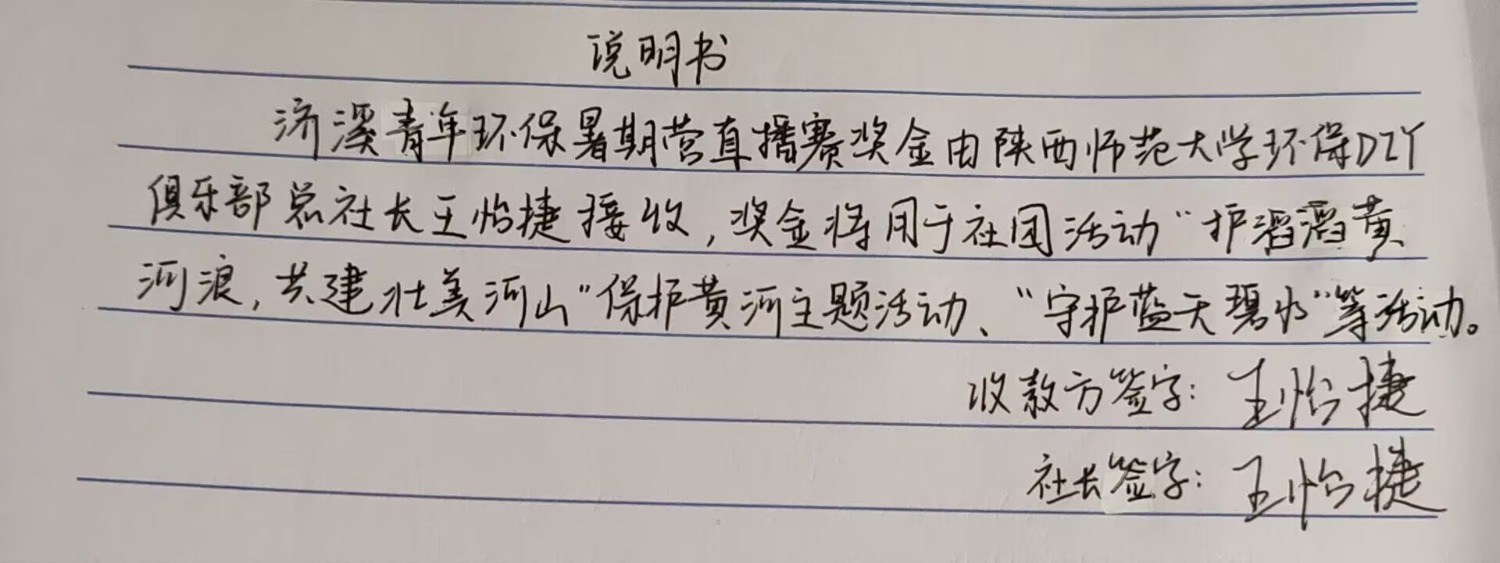 说明书
济溪青年环保暑期营直播赛奖金由陕西师范大学环保DIY
俱乐部总社长王怡捷接收,奖金将用于社团活动“护滔滔黄
河浪,共建壮美河山”保护黄河主题活动、“守护蓝天碧水”等活动。
收款方签字:王怡捷
社长签字:王怡捷